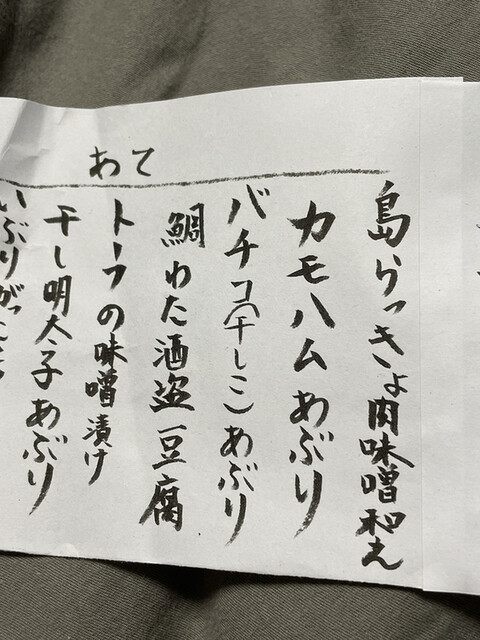 あて
島らっきょ肉味噌和え
カモハムあぶり
バチコ(干しコ)あぶり
鯛わた酒盗豆腐
トーフの味噌漬け
干し明太子あぶり
いぶりがっこ